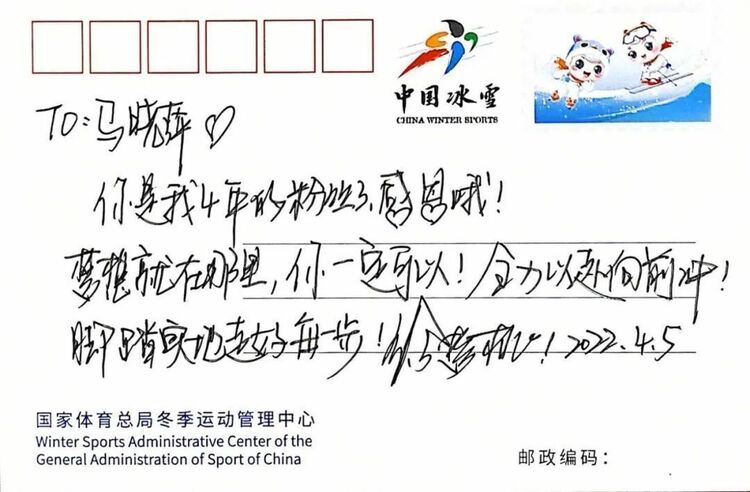 中国冰雪
CHINA WINTER SPORTS
TO：马晓萍♡
你是我4年的粉丝了，感恩哦！
梦想就在那里，你一定可以！全力以赴向前冲！
脚踏实地走好每一步！2022.4.5
国家体育总局冬季运动管理中心
Winter Sports Administrative Center of the
General Administration of Sport of China
邮政编码：